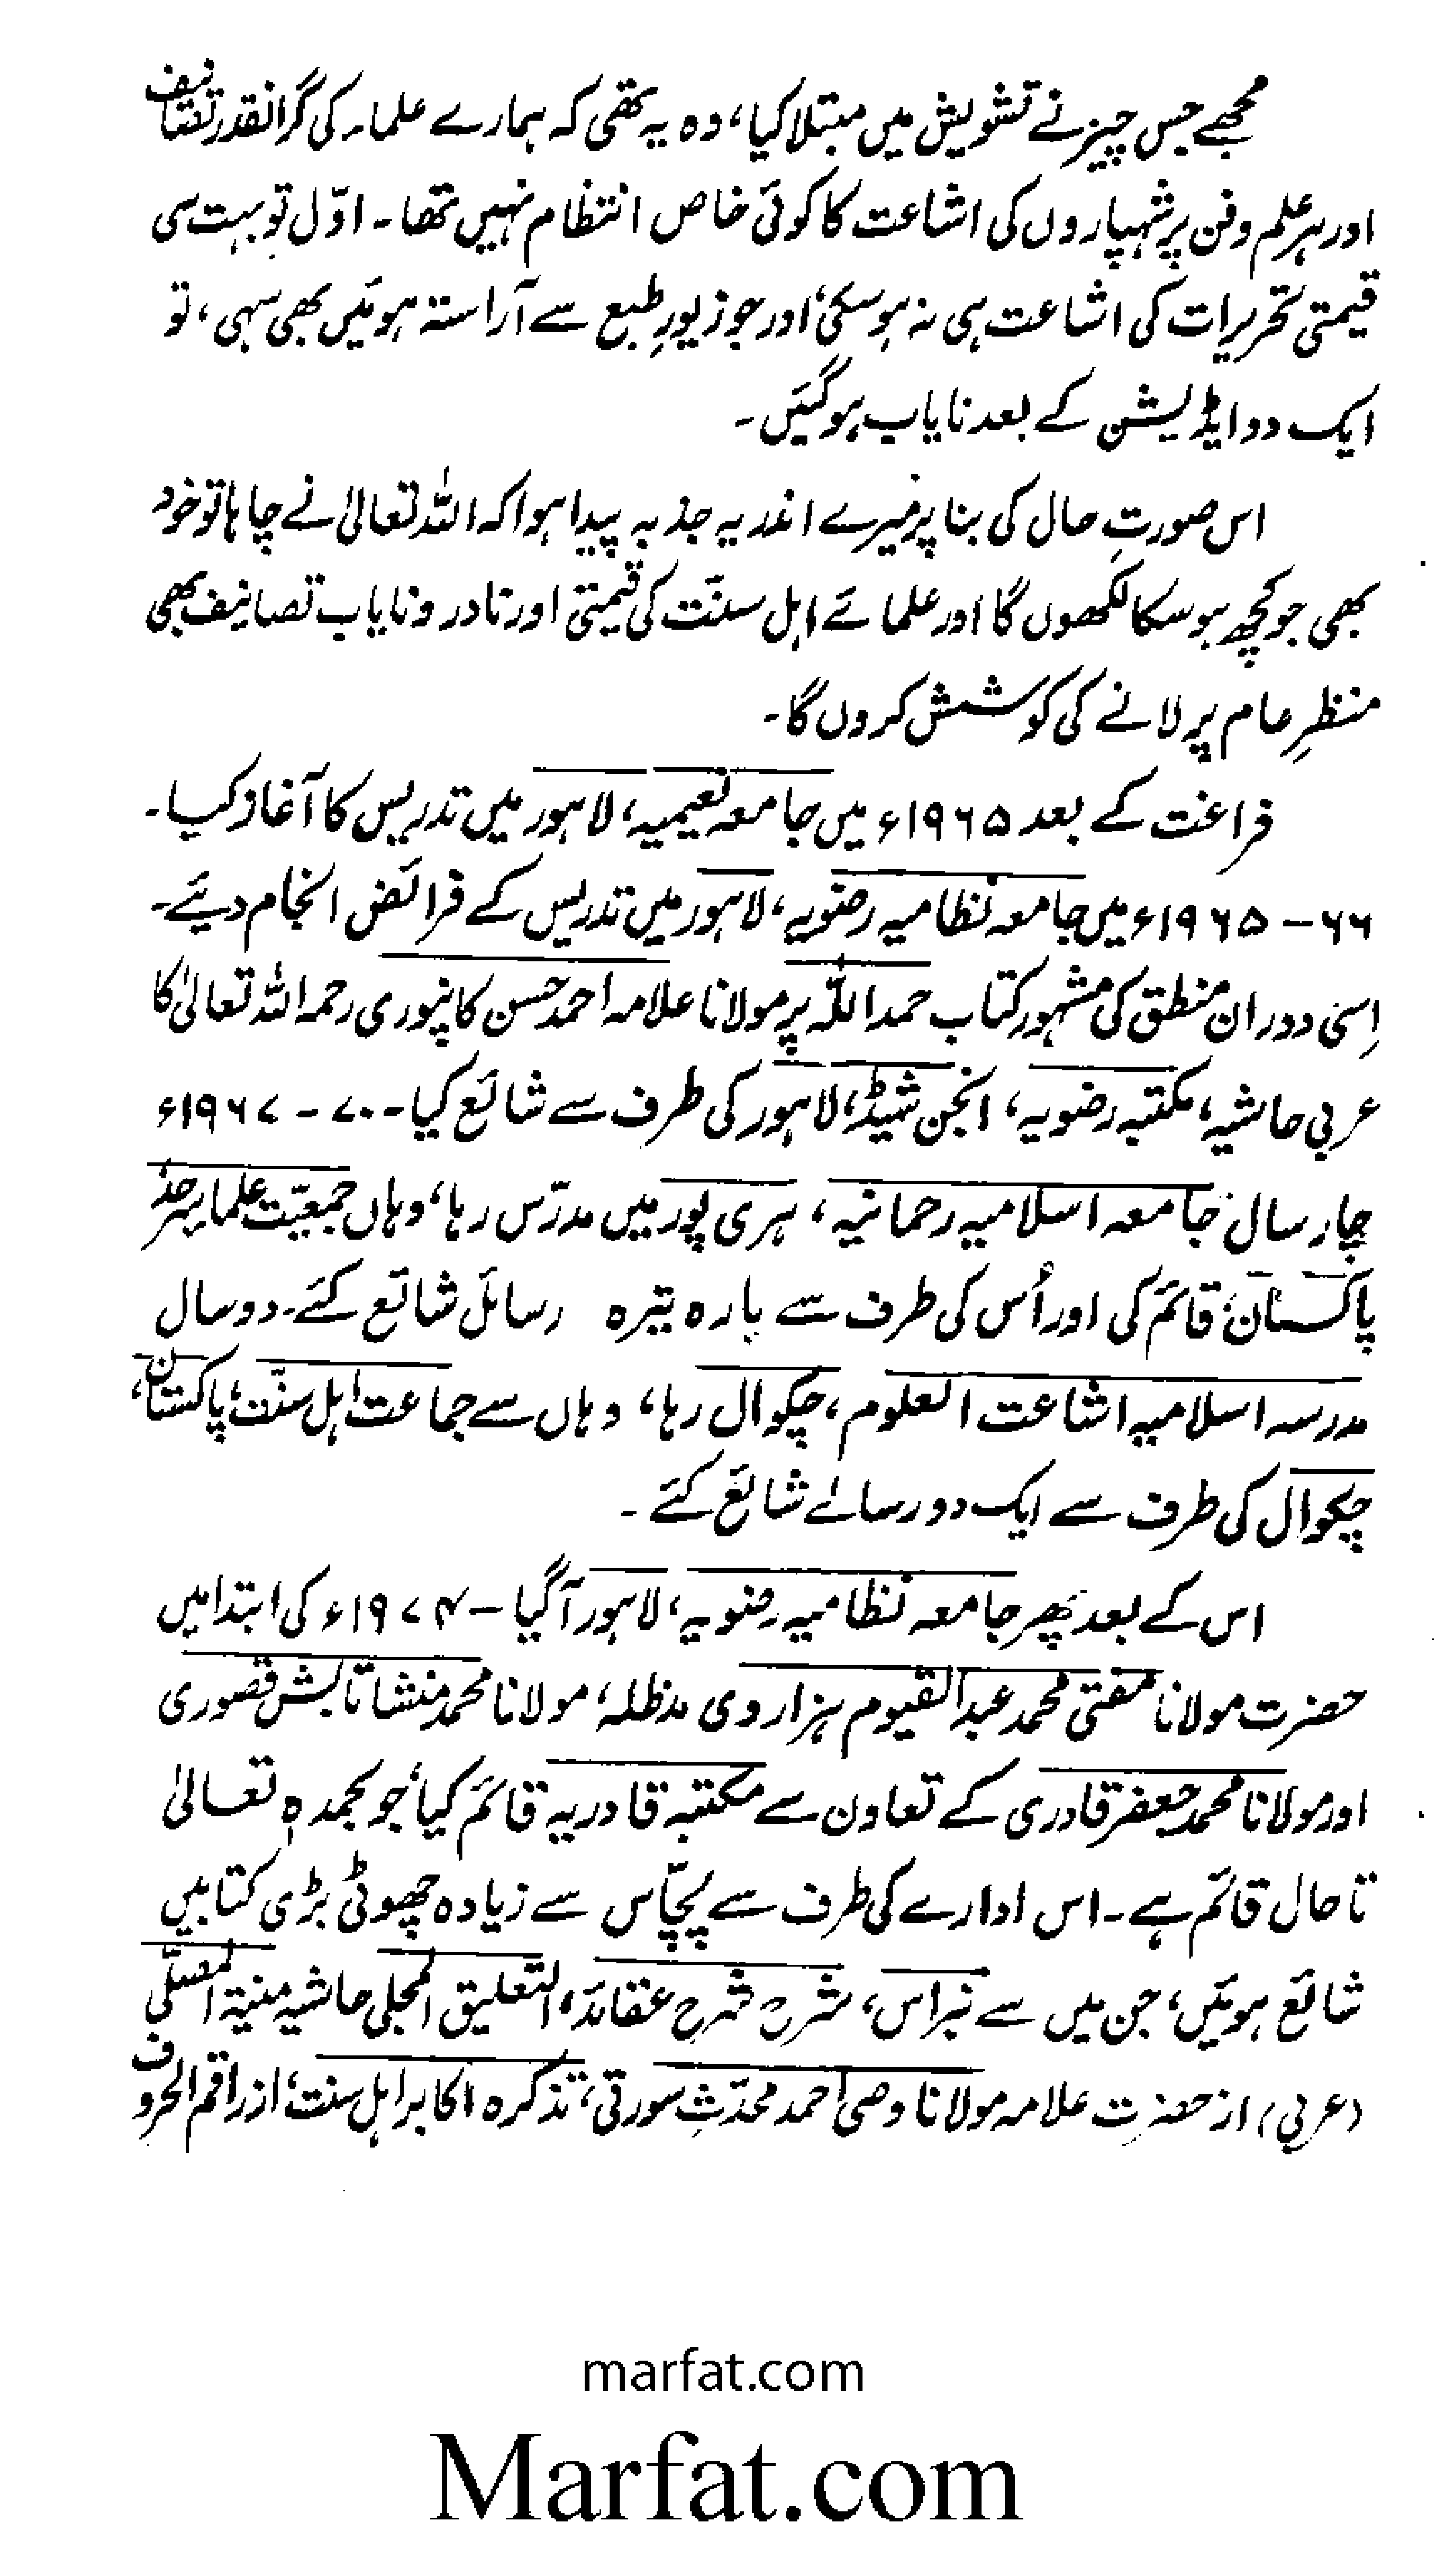 مجھے جس چیز نے تشویش میں مبتلا کیا، وہ یہ تھی کہ ہمارے علماء کی گرانقدر تصانیف
اور ہر علم و فن پر شہپاروں کی اشاعت کا کوئی خاص انتظام نہیں تھا۔ اوّل تو بہت سی
قیمتی تحریرات کی اشاعت ہی نہ ہو سکی، اور جو زیورِ طبع سے آراستہ ہوئیں بھی سہی، تو
ایک دو ایڈیشن کے بعد نایاب ہو گئیں۔
اس صورتِ حال کی بنا پر میرے اندر یہ جذبہ پیدا ہوا کہ اللہ تعالیٰ نے چاہا تو خود
بھی جو کچھ ہو سکا لکھوں گا اور علمائے اہل سنّت کی قیمتی اور نادر و نایاب تصانیف بھی
منظرِ عام پر لانے کی کوشش کروں گا۔
فراغت کے بعد ۱۹۶۵ء میں جامعہ نعیمیہ، لاہور میں تدریس کا آغاز کیا۔
۶۶ – ۱۹۶۵ء میں جامعہ نظامیہ رضویہ، لاہور میں تدریس کے فرائض انجام دیئے۔
اِسی دوران منطق کی مشہور کتاب حمد اللہ پر مولانا علامہ احمد حسن کانپوری رحمہ اللہ تعالیٰ کا
عربی حاشیہ، مکتبہ رضویہ، انجن شیڈ، لاہور کی طرف سے شائع کیا۔ ۷۰ - ۱۹۶۷ء
چار سال جامعہ اسلامیہ رحمانیہ، ہری پور میں مدرّس رہا، وہاں جمعیّت علماء سرحد
پاکستان، قائم کی اور اُس کی طرف سے بارہ تیرہ رسائل شائع کئے۔ دو سال
مدرسہ اسلامیہ اشاعت العلوم، چکوال رہا، وہاں سے جماعت اہل سنّت، پاکستان،
چکوال کی طرف سے ایک دو رسالے شائع کئے۔
اس کے بعد پھر جامعہ نظامیہ رضویہ، لاہور آ گیا – ۱۹۷۴ء کی ابتدا میں
حضرت مولانا مفتی محمد عبدالقیوم ہزاروی مدظلہ، مولانا محمد منشا تابش قصوری
اور مولانا محمد جعفر قادری کے تعاون سے مکتبہ قادریہ قائم کیا، جو بحمدہٖ تعالیٰ
تا حال قائم ہے۔ اس ادارے کی طرف سے پچّاس سے زیادہ چھوٹی بڑی کتابیں
شائع ہوئیں، جن میں سے نبراس، شرح شرح عقائد، التعلیق المجلی حاشیہ منیۃ المصلّی
(عربی) از حضرت علامہ مولانا وصی احمد محدّثِ سورتی، تذکرہ اکابر اہل سنت، از راقم الحروف
marfat.com
Marfat.com